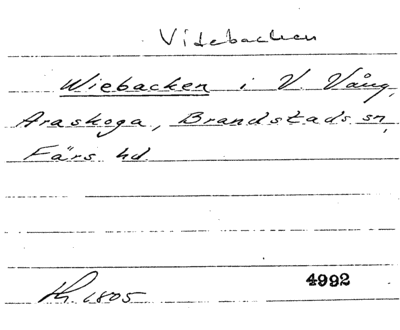 Videbacken
Wiebacken i V. Vång,
Araskoga, Brandstads sn,
Färs hd
4992
Kh. 1805